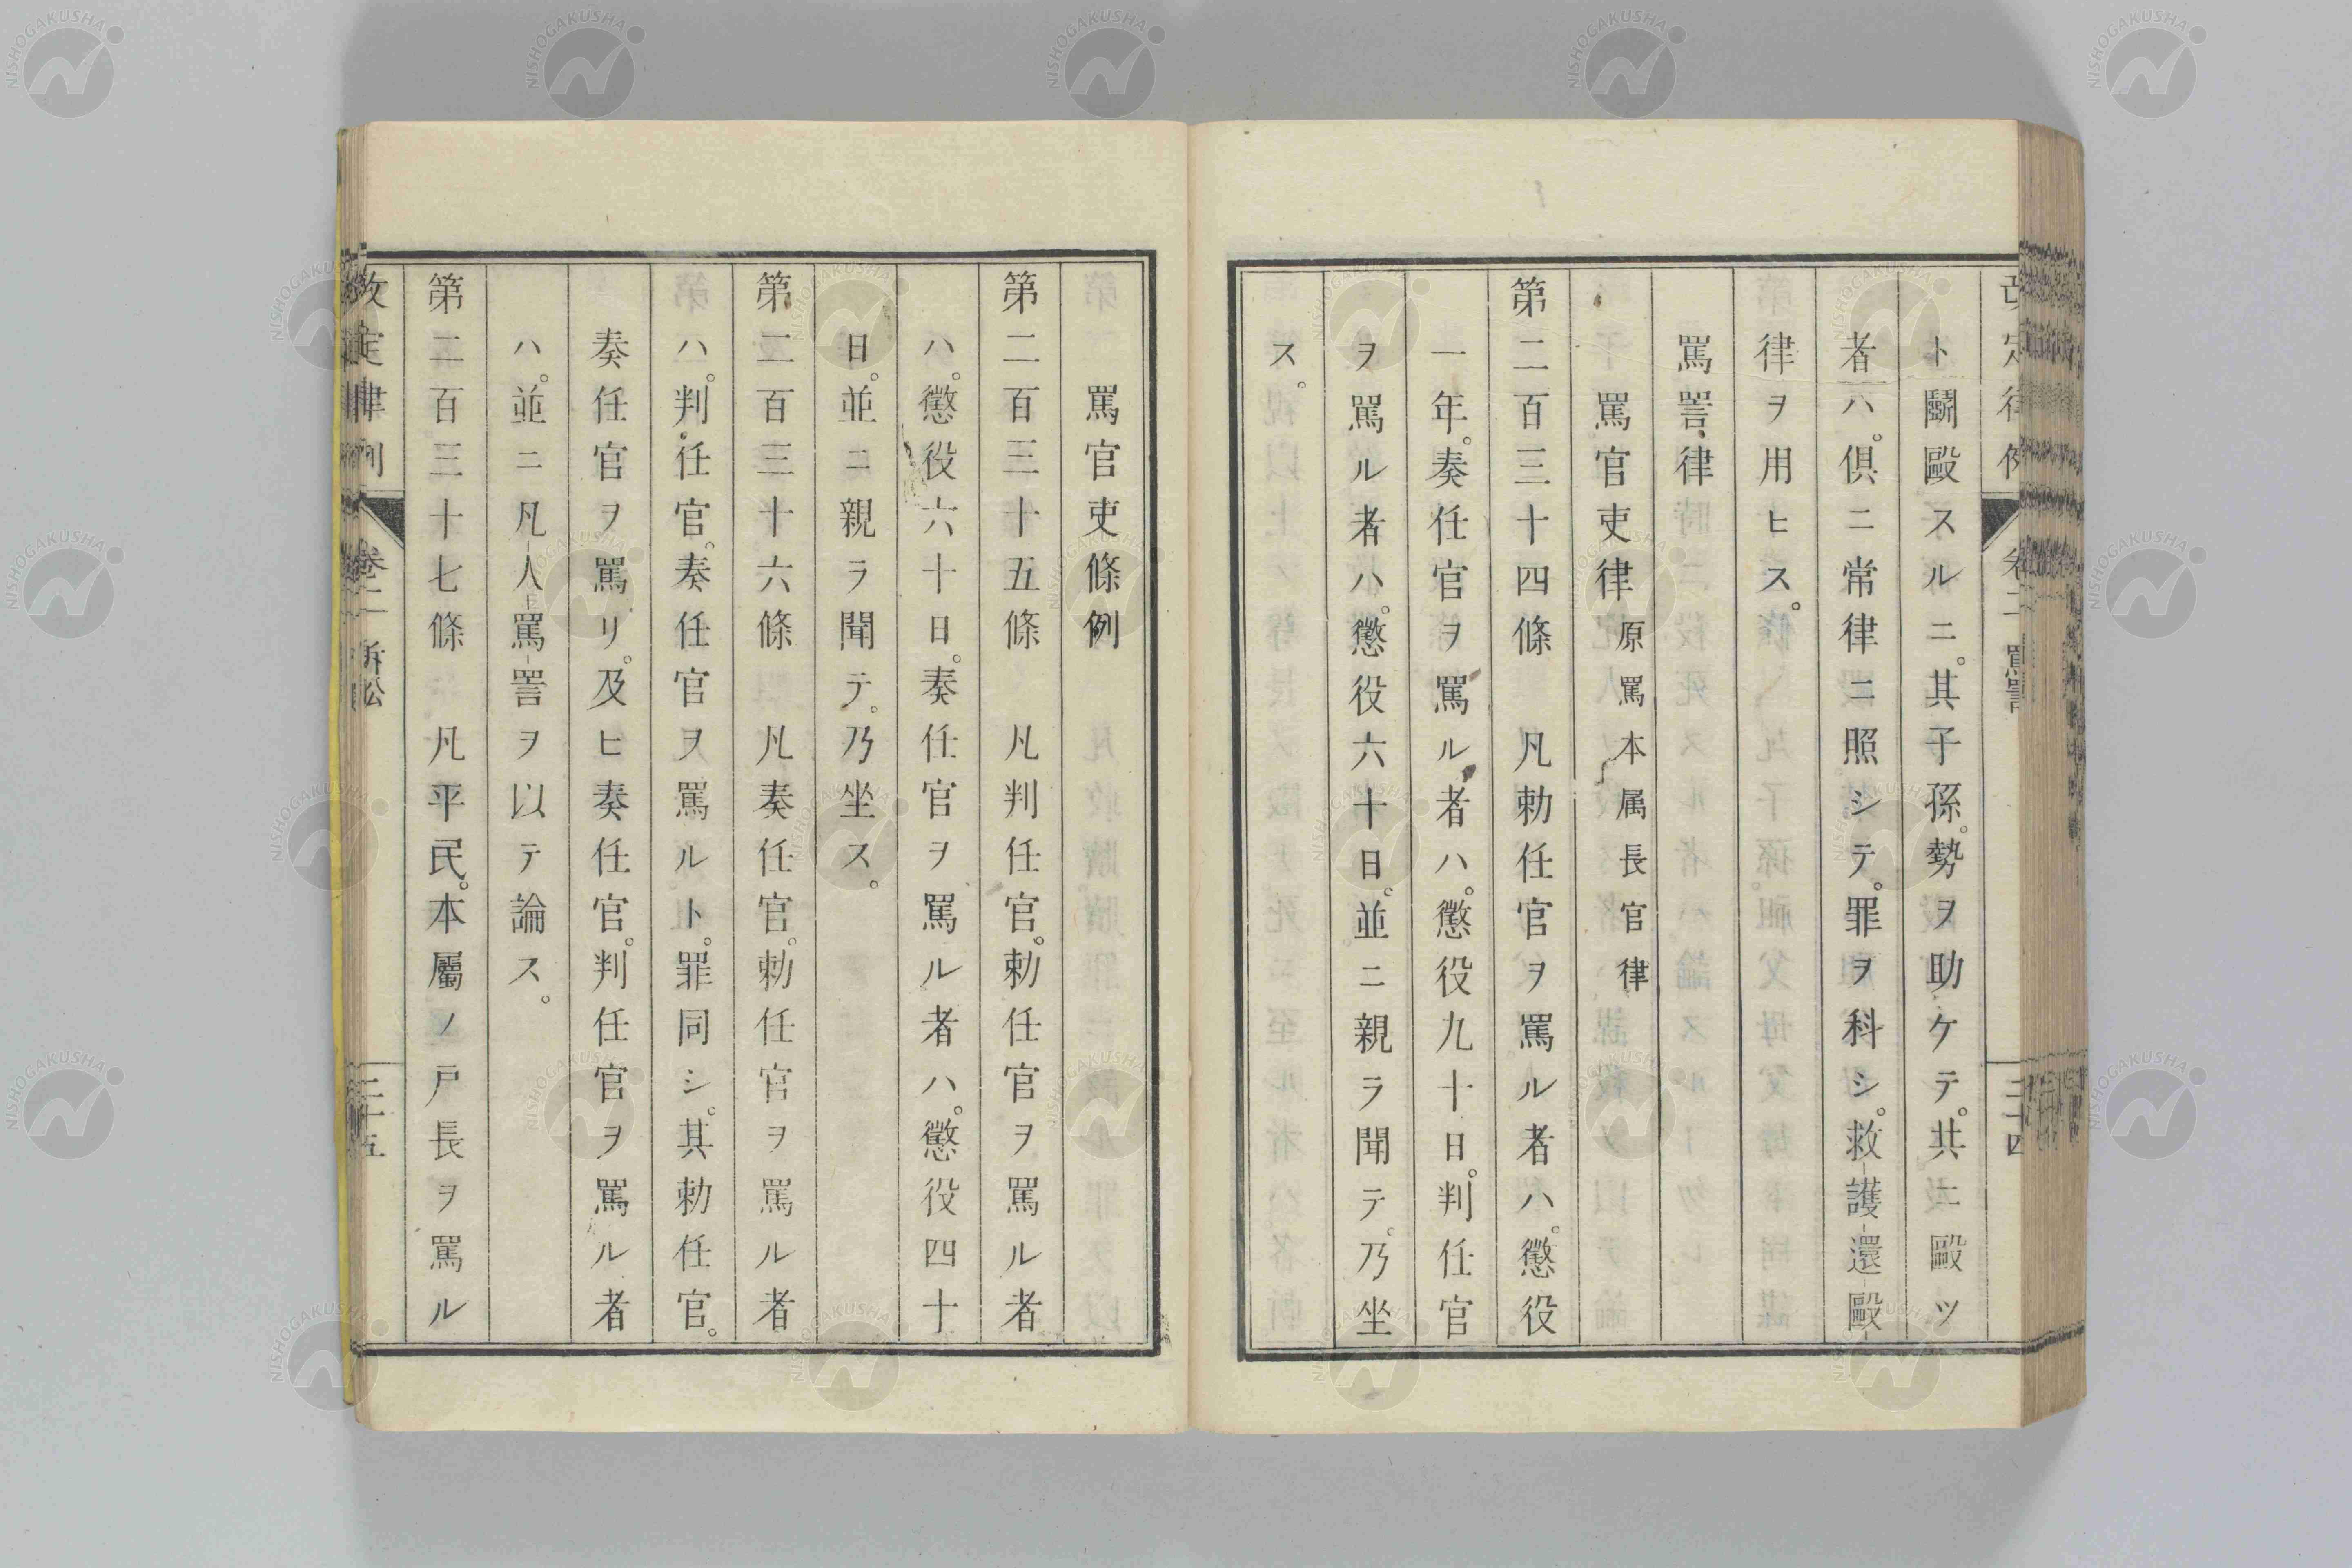 ト鬭毆スルニ。其子孫。勢ヲ助ケテ。共ニ毆ツ
者ハ。俱ニ常律ニ照シテ。罪ヲ科シ。救護還毆
律ヲ用ヒス。
罵詈律
罵官吏律 原罵本属長官律
第二百三十四條 凡勅任官ヲ罵ル者ハ。懲役
一年。奏任官ヲ罵ル者ハ。懲役九十日。判任官
ヲ罵ル者ハ。懲役六十日。並ニ親ラ聞テ。乃坐
ス。
罵官吏條例
第二百三十五條 凡判任官。勅任官ヲ罵ル者
ハ。懲役六十日。奏任官ヲ罵ル者ハ。懲役四十
日。並ニ親ラ聞テ。乃坐ス。
第二百三十六條 凡奏任官。勅任官ヲ罵ル者
ハ。判任官。奏任官ヲ罵ルト。罪同シ。其勅任官。
奏任官ヲ罵リ。及ヒ奏任官。判任官ヲ罵ル者
ハ。並ニ凡人罵詈ヲ以テ論ス。
第二百三十七條 凡平民。本屬ノ戸長ヲ罵ル
卷二 訴訟
三十五
NISHOGAKUSHA